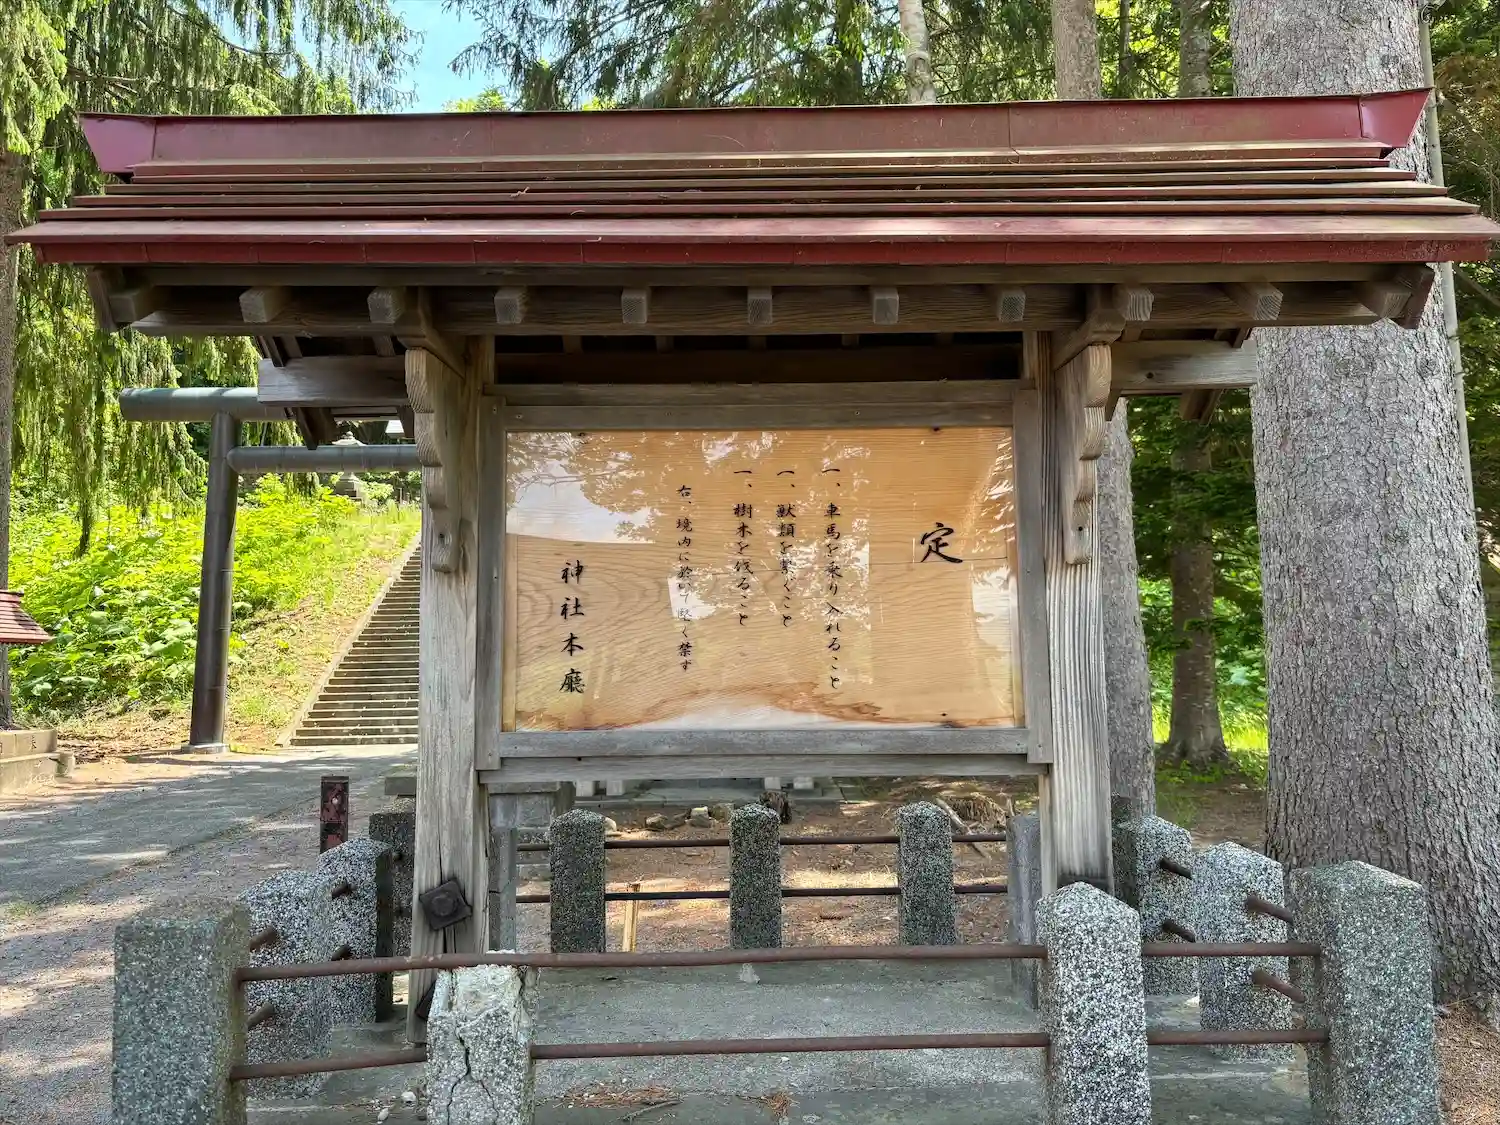 定
一、車馬を乗り入れること
一、獣類を繋ぐこと
一、樹木を伐ること
右、境内に於いて堅く禁ず
神社本廳